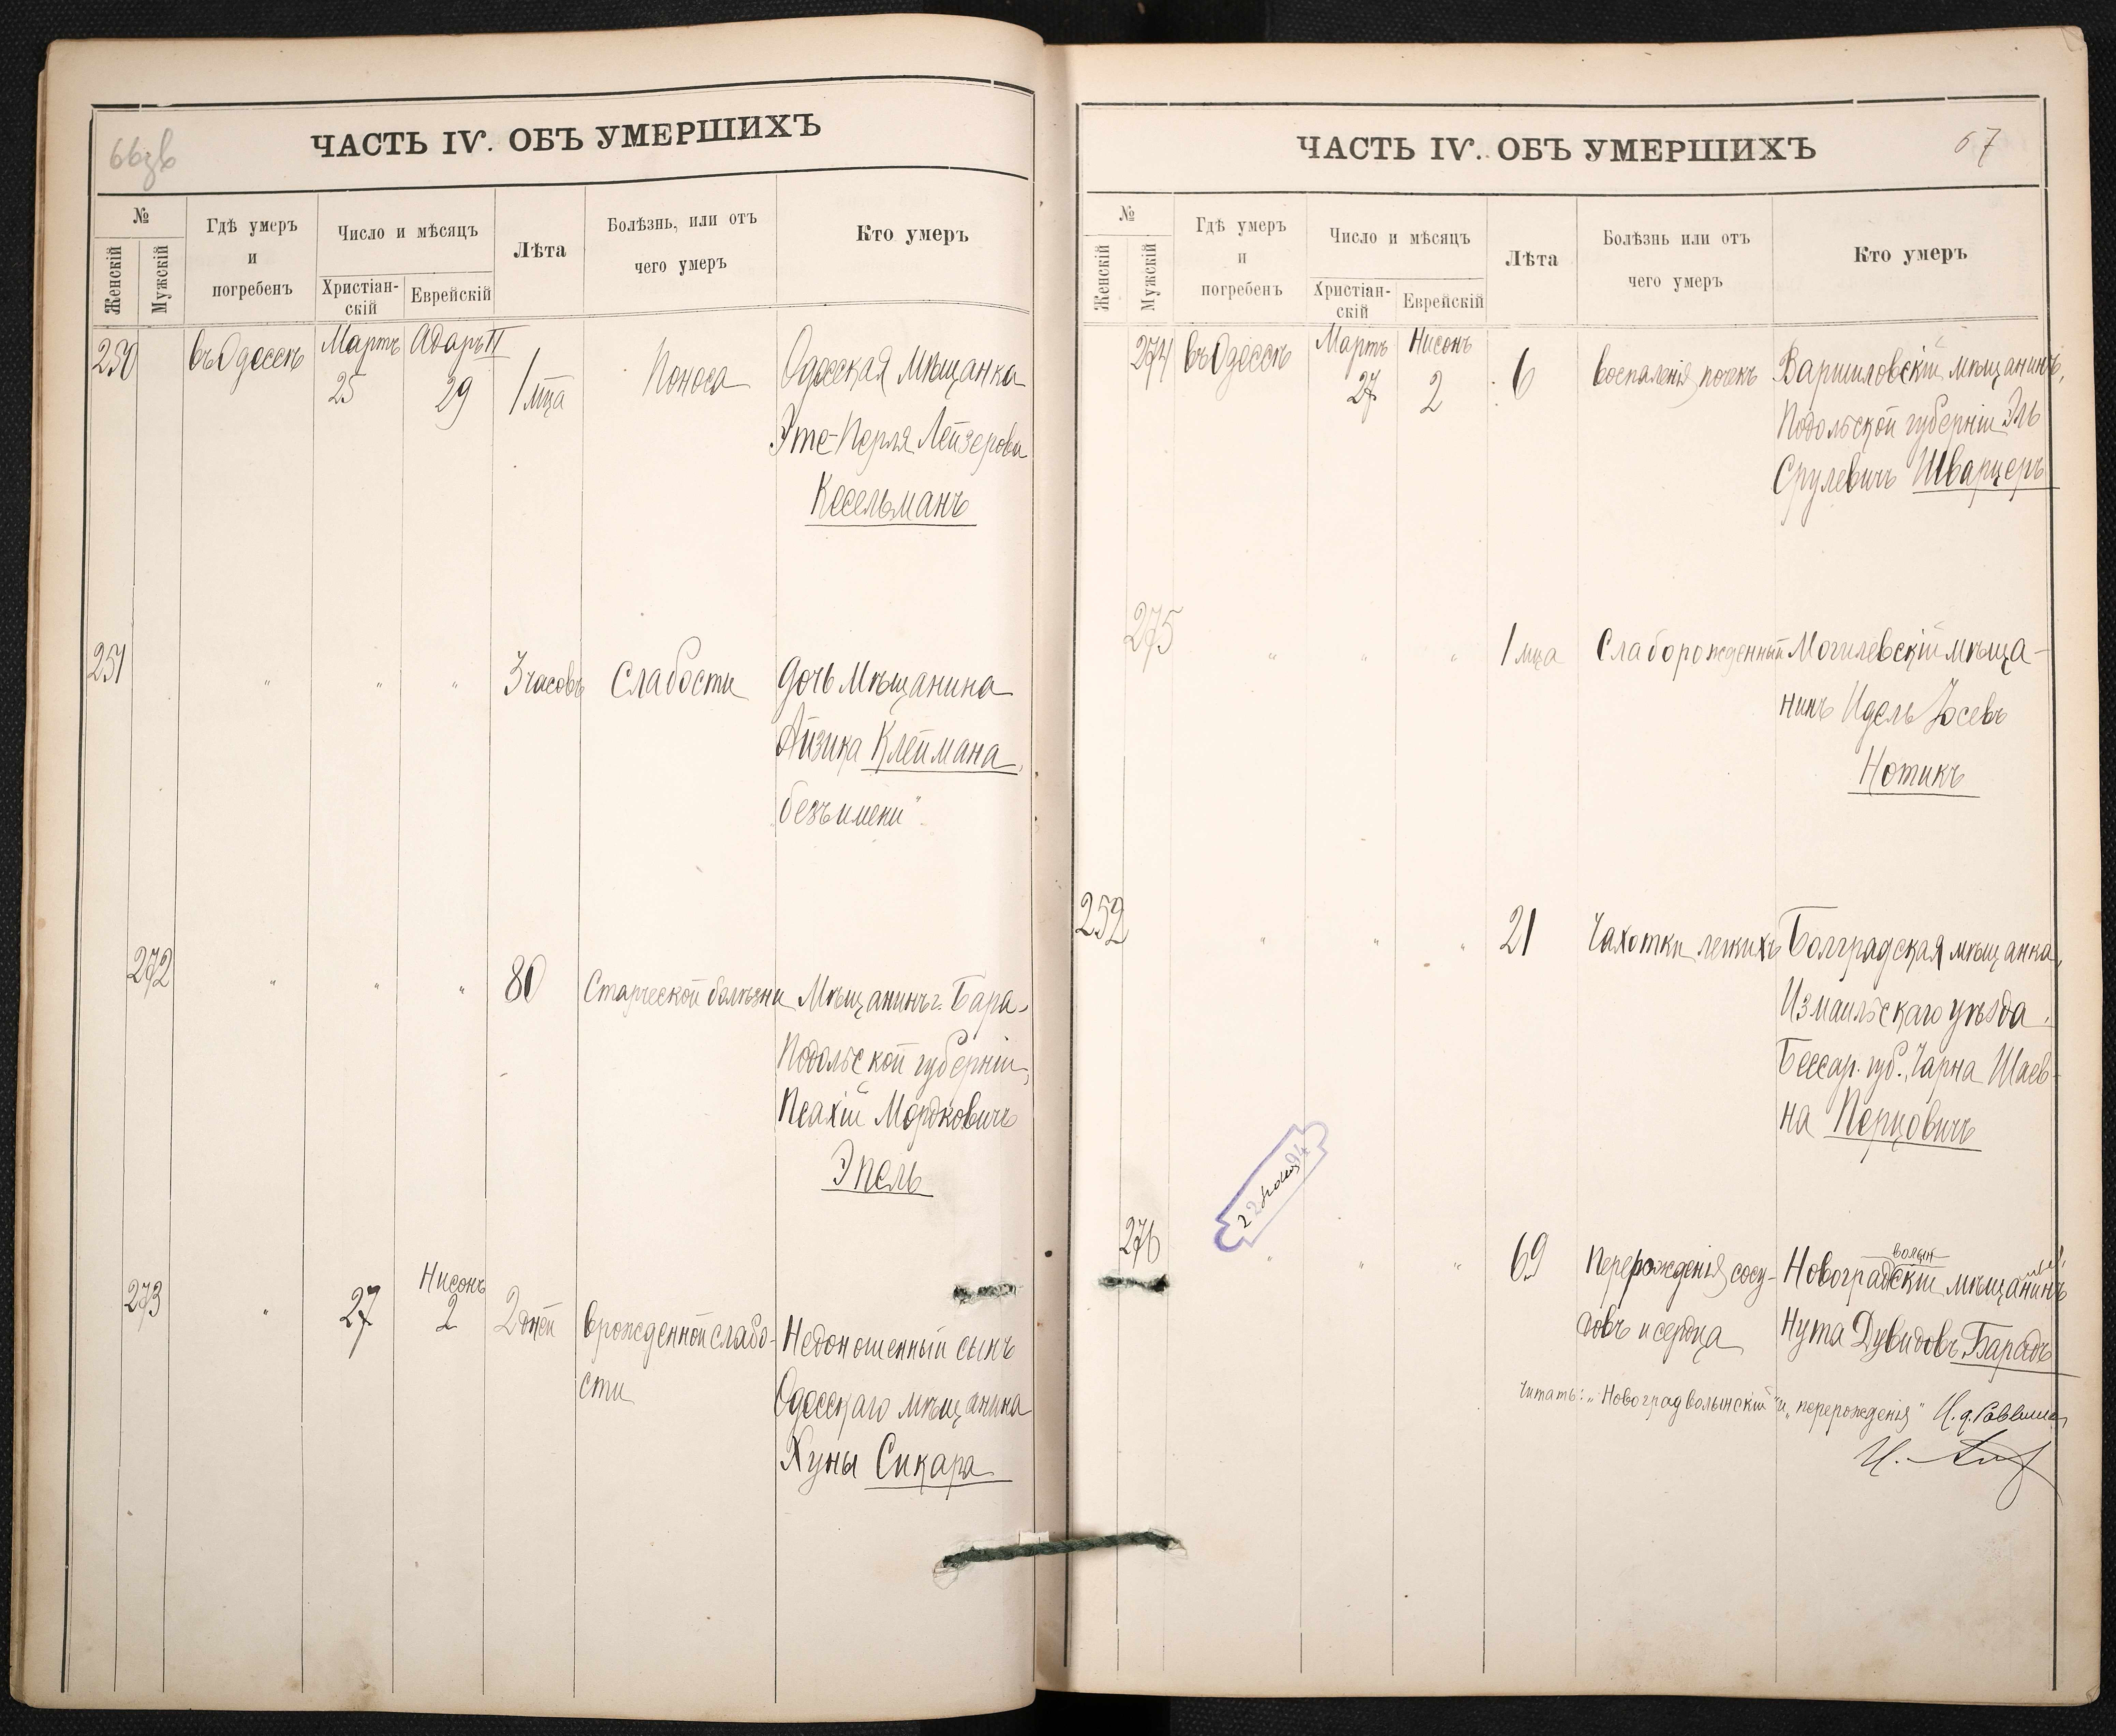 66зв
ЧАСТЬ IV. ОБЪ УМЕРШИХЪ
№
Женскій
Мужскій
Гдѣ умеръ
и
погребенъ
Число и мѣсяцъ
Христіан-
скій
Еврейскій
Лѣта
Болѣзнь, или отъ
чего умеръ
Кто умеръ
250 въ Одессѣ Мартъ 25 Адаръ II 29 1 мца Поноса Одесская мѣщанка
Эте-Перля Лейзерова
Кесельманъ
251 " " " 3 часовъ Слабости Дочь мѣщанина
Айзика Клеймана,
"безъ имени"
272 " " " 80 Старческой болѣзни Мѣщанинъ г. Бара,
Подольской губерніи,
Псахій Мордковичъ
Эпель
273 " 27 Нисонъ 2 2 дней Врожденной слабо-
сти
Недоношенный сынъ
Одесскаго мѣщанина
Хуны Сикара
67
ЧАСТЬ IV. ОБЪ УМЕРШИХЪ
№
Женскій
Мужскій
Гдѣ умеръ
и
погребенъ
Число и мѣсяцъ
Христіан-
скій
Еврейскій
Лѣта
Болѣзнь или отъ
чего умеръ
Кто умеръ
274 въ Одессѣ Мартъ 27 Нисонъ 2 6 воспаленія почекъ Варшиловскій мѣщанинъ,
Подольской губерніи Эль
Срулевичъ Шварцеръ
275 " " " 1 мца Слаборожденный Могилевскій мѣща-
нинъ Идель Іосевъ
Нотикъ
252 " " " 21 Чахотки легкихъ Болградская мѣщанка,
Измаильскаго уѣзда,
Бессар. губ., Чарна Шаев-
на Перцовичъ
276 " " " 69 Перерожденія сосу-
довъ и сердца
волын
Новоградскій мѣщанинъ
Нута Дувидовъ Барадъ
Читать: "Новоградволынскій" и "перерожденія" И. д. Раввина